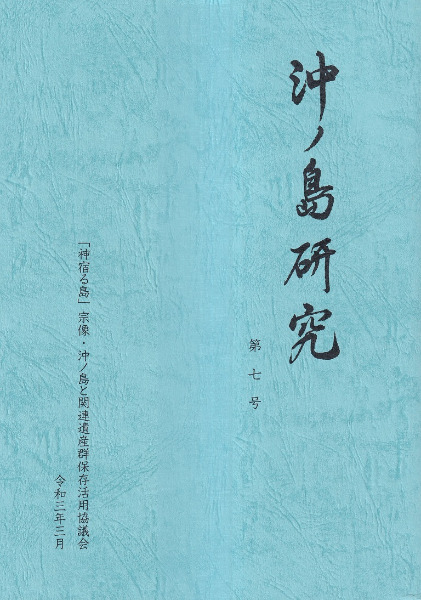 沖ノ島研究
第七号
「神宿る島」宗像・沖ノ島と関連遺産群保存活用協議会
令和三年三月